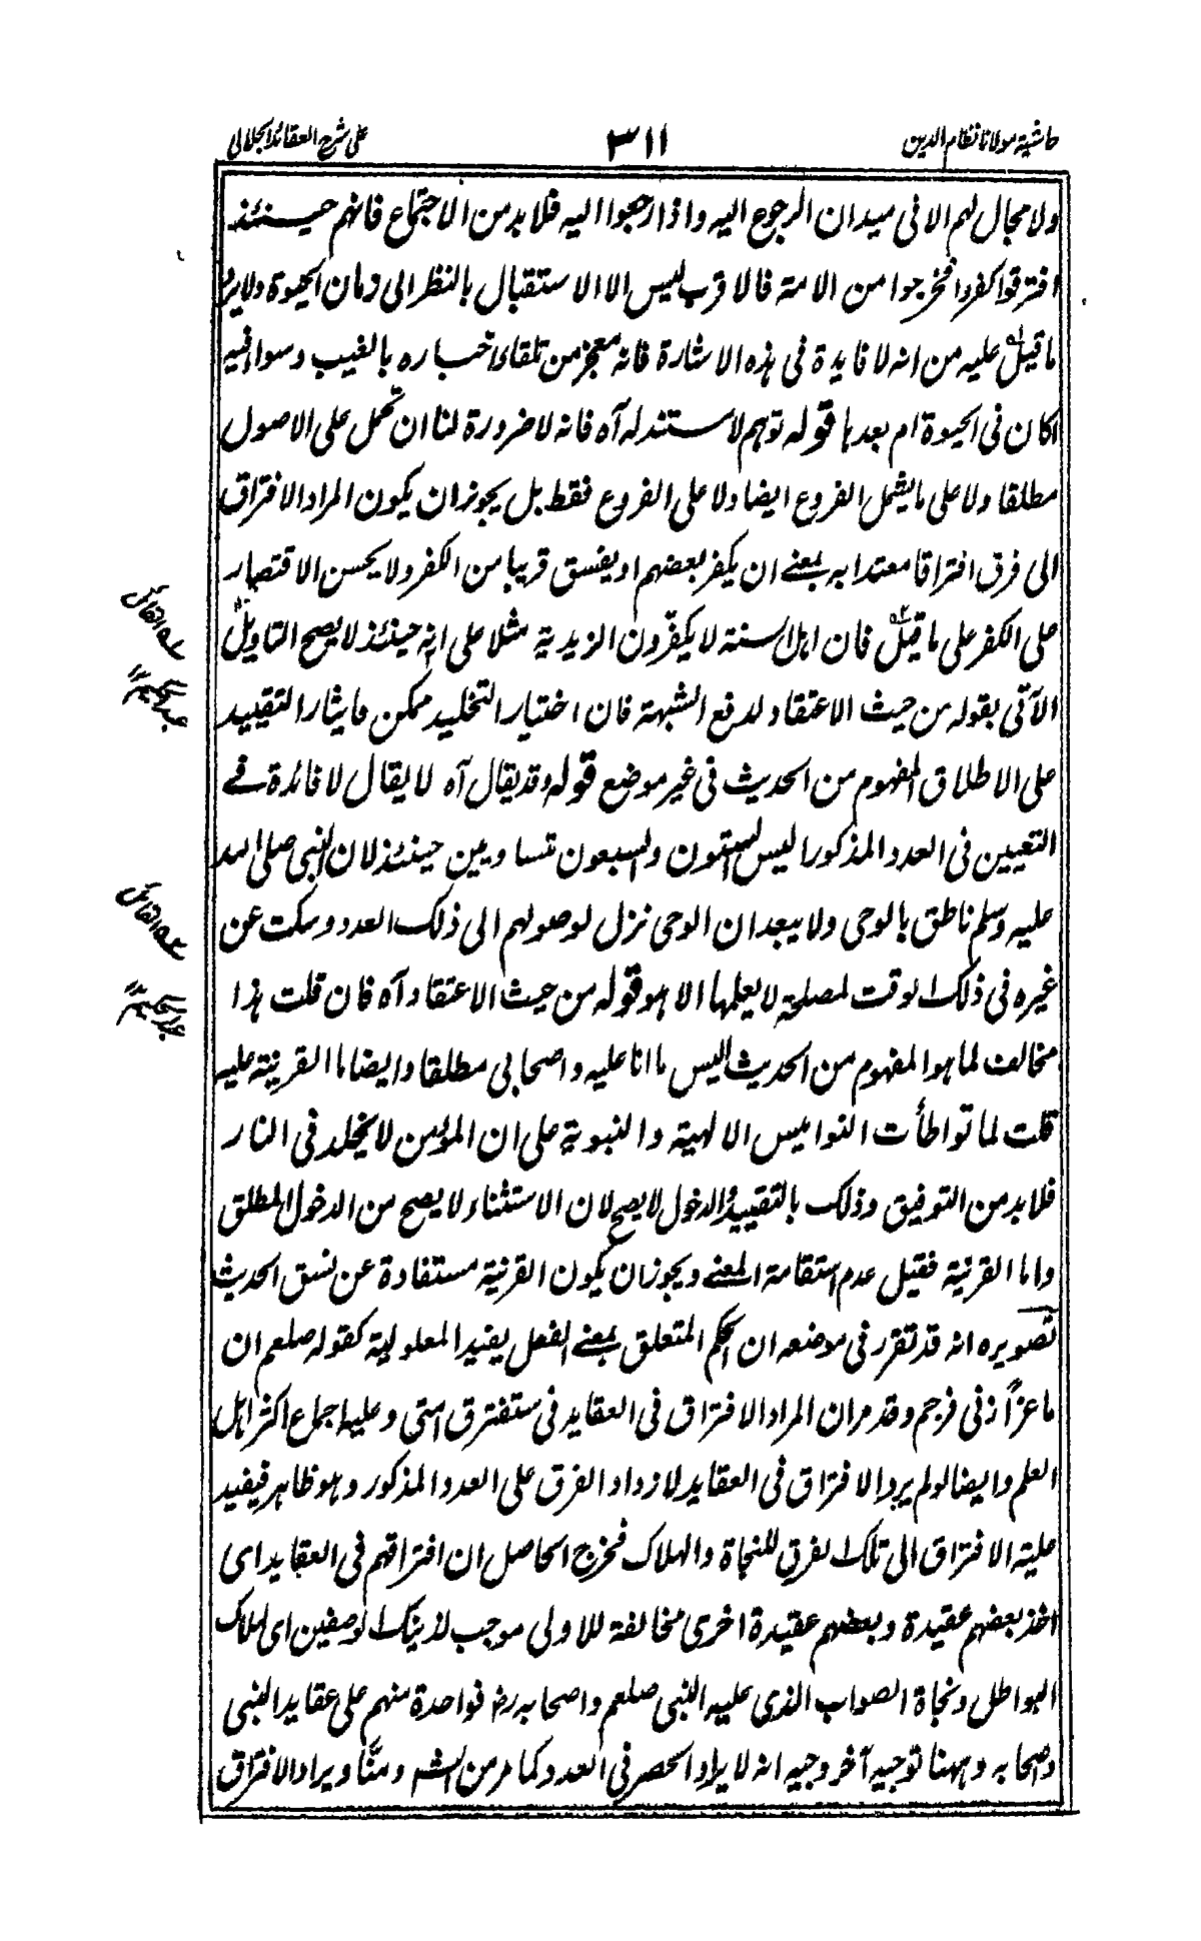 حاشية مولانا نظام الدين
٣١١
على شرح العقائد الجلالى
ولا مجال لهم الا فى ميدان الرجوع اليه واذا رجعوا اليه فلا بد من الاجتماع فانهم حينئذ
افترقوا كفروا فخرجوا من الامة فالاقرب ليس الا الاستقبال بالنظر الى زمان الحيوة ولا يرد
ما قيل عليه من انه لا فايدة فى هذه الاشارة فانه معجز من تلقاء اخباره بالغيب وسواء فيه
اكان فى الحيوة ام بعدها قوله توهم لا مستند له آه فانه لا ضرورة لنا ان تحمل على الاصول
مطلقا ولا على ما يشمل الفروع ايضا ولا على الفروع فقط بل يجوز ان يكون المراد الافتراق
الى فرق افتراقا معتدا به بمعنے ان يكفر بعضهم او يفسق قريبا من الكفر ولا يحسن الاقتصار
على الكفر على ما قيل فان اهل السنة لا يكفّرون الزيدية مثلا على انه حينئذ لا يصح التاويل
الآتى بقوله من حيث الاعتقاد لدفع الشبهة فان اختيار التخليد ممكن ما يثار التقييد
على الاطلاق المفهوم من الحديث فى غير موضع قوله وقد يقال آه لا يقال لا فائدة فے
التعيين فى العدد المذكور اليس الستون والسبعون تساويين حينئذ لان النبى صلى الله
عليه وسلم ناطق بالوحى ولا يبعد ان الوحى نزل لوصولهم الى ذلك العدد وسكت عن
غيره فى ذلك الوقت لمصلحة لا يعلمها الا هو قوله من حيث الاعتقاد آه فان قلت هذا
مخالف لما هو المفهوم من الحديث اليس ما انا عليه واصحابى مطلقا وايضا ما القرينة عليه
قلت لما تواطأت النواميس الالهية والنبوية على ان المؤمن لا يخلد فى النار
فلا بد من التوفيق وذلك بالتقييد والدخول لا يصح لان الاستثناء لا يصح من الدخول المطلق
واما القرنية فقيل عدم استقامة المعنے ويجوز ان يكون القرنية مستفادة عن نسق الحديث
تصويره انه قد تقرر فى موضعه ان الحكم المتعلق بمعنے الفعل يفيد المعلولية كقوله صلعم ان
ماعزاً زنى فرجم وقد مر ان المراد الافتراق فى العقايد فى ستفترق امتى وعليه اجماع اكثر اهل
العلم وايضا لو لم يرد الافتراق فى العقايد لازداد الفرق على العدد المذكور وهو ظاهر فيفيد
علية الافتراق الى تلك الفرق للنجاة والهلاك فخرج الحاصل ان افتراقهم فى العقايد اى
اخذ بعضهم عقيدة وبعضهم عقيدة اخرى مخالفة للاولى موجب لذينك الوصفين اى هلاك
البواطل ونجاة الصواب الذى عليه النبى صلعم واصحابه رضـ فواحدة منهم على عقايد النبى
واصحابه وههنا توجيه آخر وجيه انه لا يراد الحصر فى العدد كما مر من الشـ ومنّا ويراد الافتراق
سه القائل
عبدالحكيم ١٢
سه القائل
عبدالحكيم ١٢